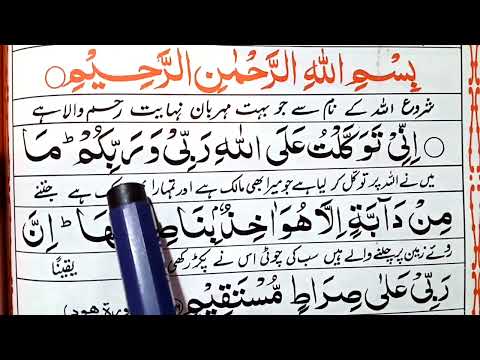 بِسْمِ اللهِ الرَّحْمٰنِ الرَّحِيْمِ
شروع اللہ کے نام سے جو بہت مہربان نہایت رحم والا ہے
اِنِّیْ تَوَكَّلْتُ عَلَی اللهِ رَبِّیْ وَرَبِّكُمْ ؕ مَا
میں نے اللہ پر توکل کر لیا ہے جو میرا بھی مالک ہے اور تمہارا ہے جتنے
مِنْ دَآبَّةٍ اِلَّا هُوَ اٰخِذٌۢ بِنَا هَا ؕ اِنَّ
روئے زمین پر چلنے والے ہیں سب کی چوٹی اس نے پکڑ رکھی یقیناً
رَبِّیْ عَلٰی صِرَاطٍ مُّسْتَقِيْمٍ